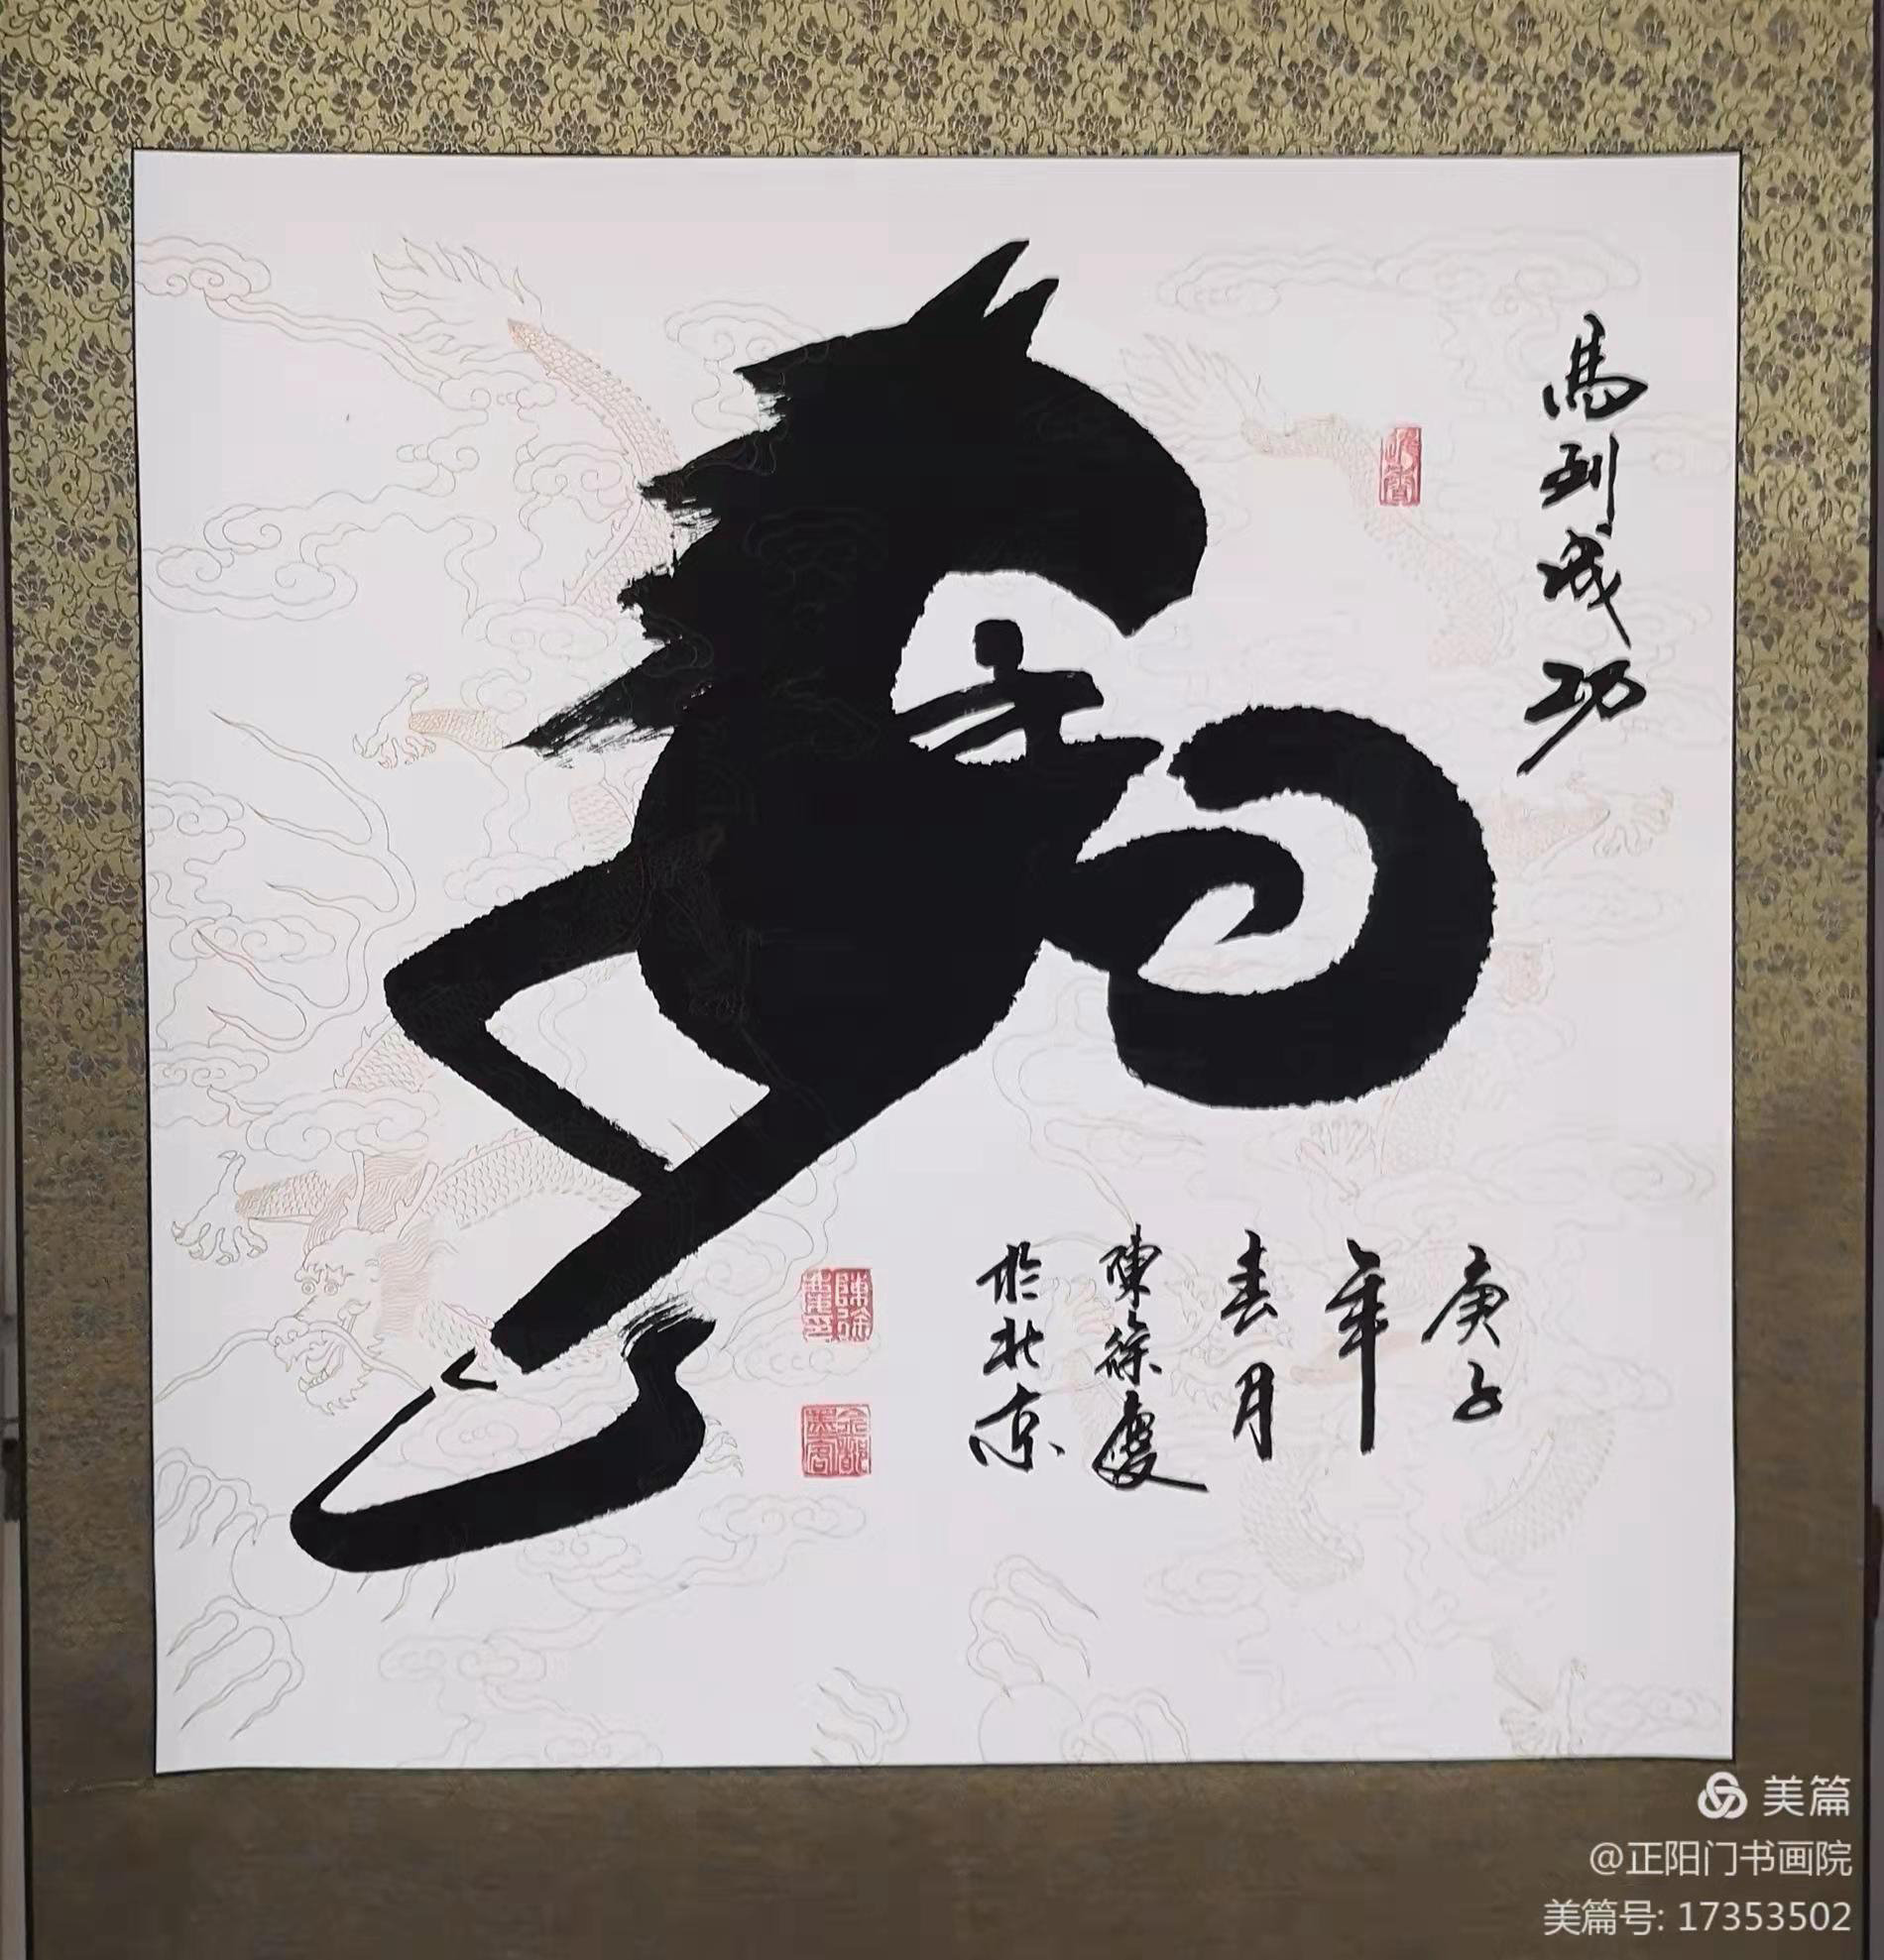 馬到成功
庚子
年
春月
陳篠慶
於北京
美篇
@正阳门书画院
美篇号: 17353502